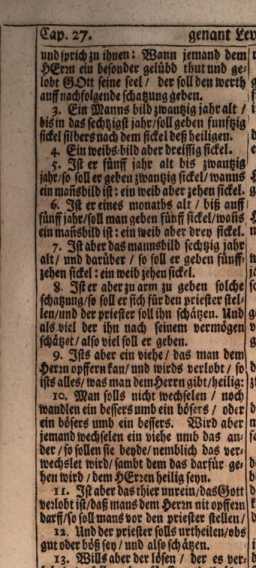 Cap. 27. genant Lev
und sprich zu ihnen: Wann jemand dem
HErrn ein besonder gelübd thut und ge-
lobt GOtt seine seel / der soll den werth
auff nachfolgende schatzung geben.
3. Ein Manns bild zwantzig jahr alt /
biß in das sechtzigst jahr / soll geben funfftzig
sickel silbers nach dem sickel deß heiligen.
4. Ein weibs bild aber dreissig sickel.
5. Ist er fünff jahr alt bis zwantzig
jahr / so soll er geben zwantzig sickel / wanns
ein mañsbild ist: ein weib aber zehen sickel.
6. Ist er eines monaths alt / biß auff
fünff jahr / soll man geben fünff sickel / wañs
ein mañsbild ist: ein weib aber drey sickel.
7. Ist aber das mannsbild sechtzig jahr
alt / und darüber / so soll er geben fünff-
zehen sickel: ein weib zehen sickel.
8. Ist er aber zu arm zu geben solche
schatzung / so soll er sich für den priester stel-
len / und der priester soll ihn schätzen. Und
als viel der ihn nach seinem vermögen
schätzet / also viel soll er geben.
9. Ists aber ein viehe / das man dem
Herrn opffern kan / und wirds verlobt / so
ists alles / was man dem Herrn gibt / heilig:
10. Man solls nicht wechselen / noch
wandlen ein bessers umb ein bösers / oder
ein bösers umb ein bessers. Wird aber
jemand wechselen ein viehe umb das an-
der / so sollen sie beyde / nemblich das ver-
wechslet wird / sambt dem das darfür ge-
hen wird / dem HErren heilig seyn.
11. Ist aber das thier unrein / das Gott
verlobt ist / daß mans dem Herrn nit opffern
darff / so soll mans vor den priester stellen /
12. Und der priester solls urtheilen / obs
gut oder böß sey / und also schätzen.
13. Wills aber der lösen / der es ver-